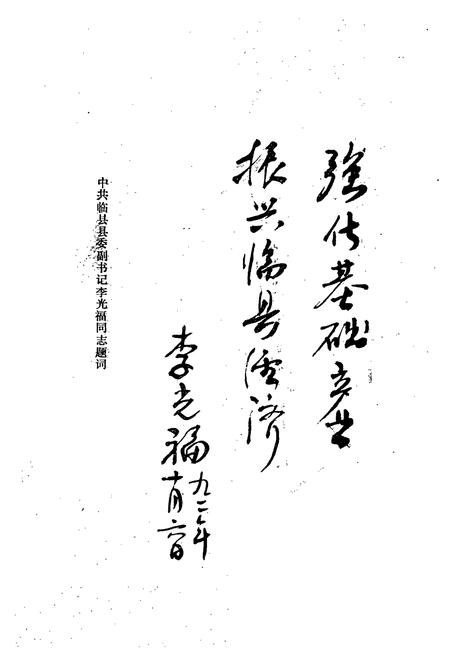 强化基础产业
振兴临县经济
李光福
九二年
十月六日
中共临县县委副书记李光福同志题词